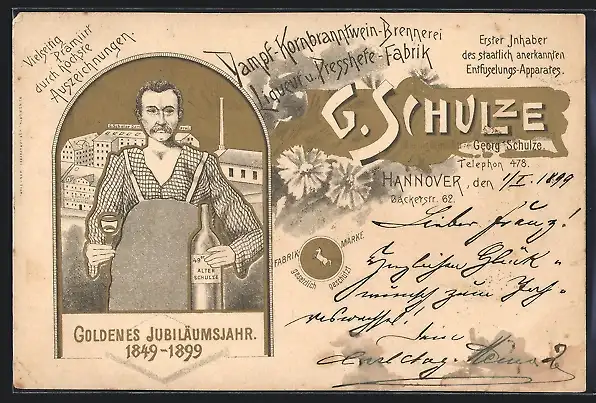 Vielseitig
Prämiirt
durch höchste
Auszeichnungen.
Dampf-Kornbranntwein-Brennerei
Liqueur u. Presshefe-Fabrik
Erster Inhaber
des staatlich anerkannten
Entfuselungs-Apparates.
G. SCHULZE
Georg Schulze.
Telephon 478.
HANNOVER, den 1/I. 1899
Bäckerstr. 62.
Lieber Franz!
Glück-
wunsch zum Jah-
reswechsel!
Dein
FABRIK MARKE
gesetzlich geschützt
49er
ALTER
SCHULZE
GOLDENES JUBILÄUMSJAHR.
1849-1899